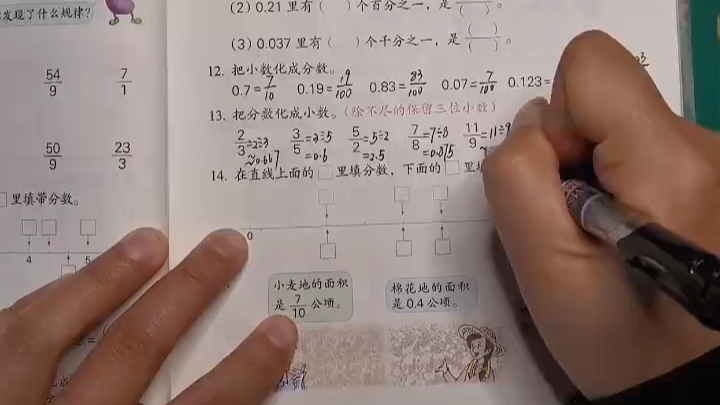 发现了什么规律?
54/9 7/1
50/9 23/3
里填带分数。
4 5
(2) 0.21 里有( )个百分之一,是( )/( )。
(3) 0.037 里有( )个千分之一,是( )/( )。
12. 把小数化成分数。
0.7=7/10 0.19=19/100 0.83=83/100 0.07=7/100 0.123=
13. 把分数化成小数。(除不尽的保留三位小数)
2/3=2÷3≈0.667 3/5=3÷5=0.6 5/2=5÷2=2.5 7/8=7÷8=0.875 11/9=11÷9
14. 在直线上面的□里填分数,下面的□里填
0
小麦地的面积
是 7/10 公顷。
棉花地的面积
是 0.4 公顷。